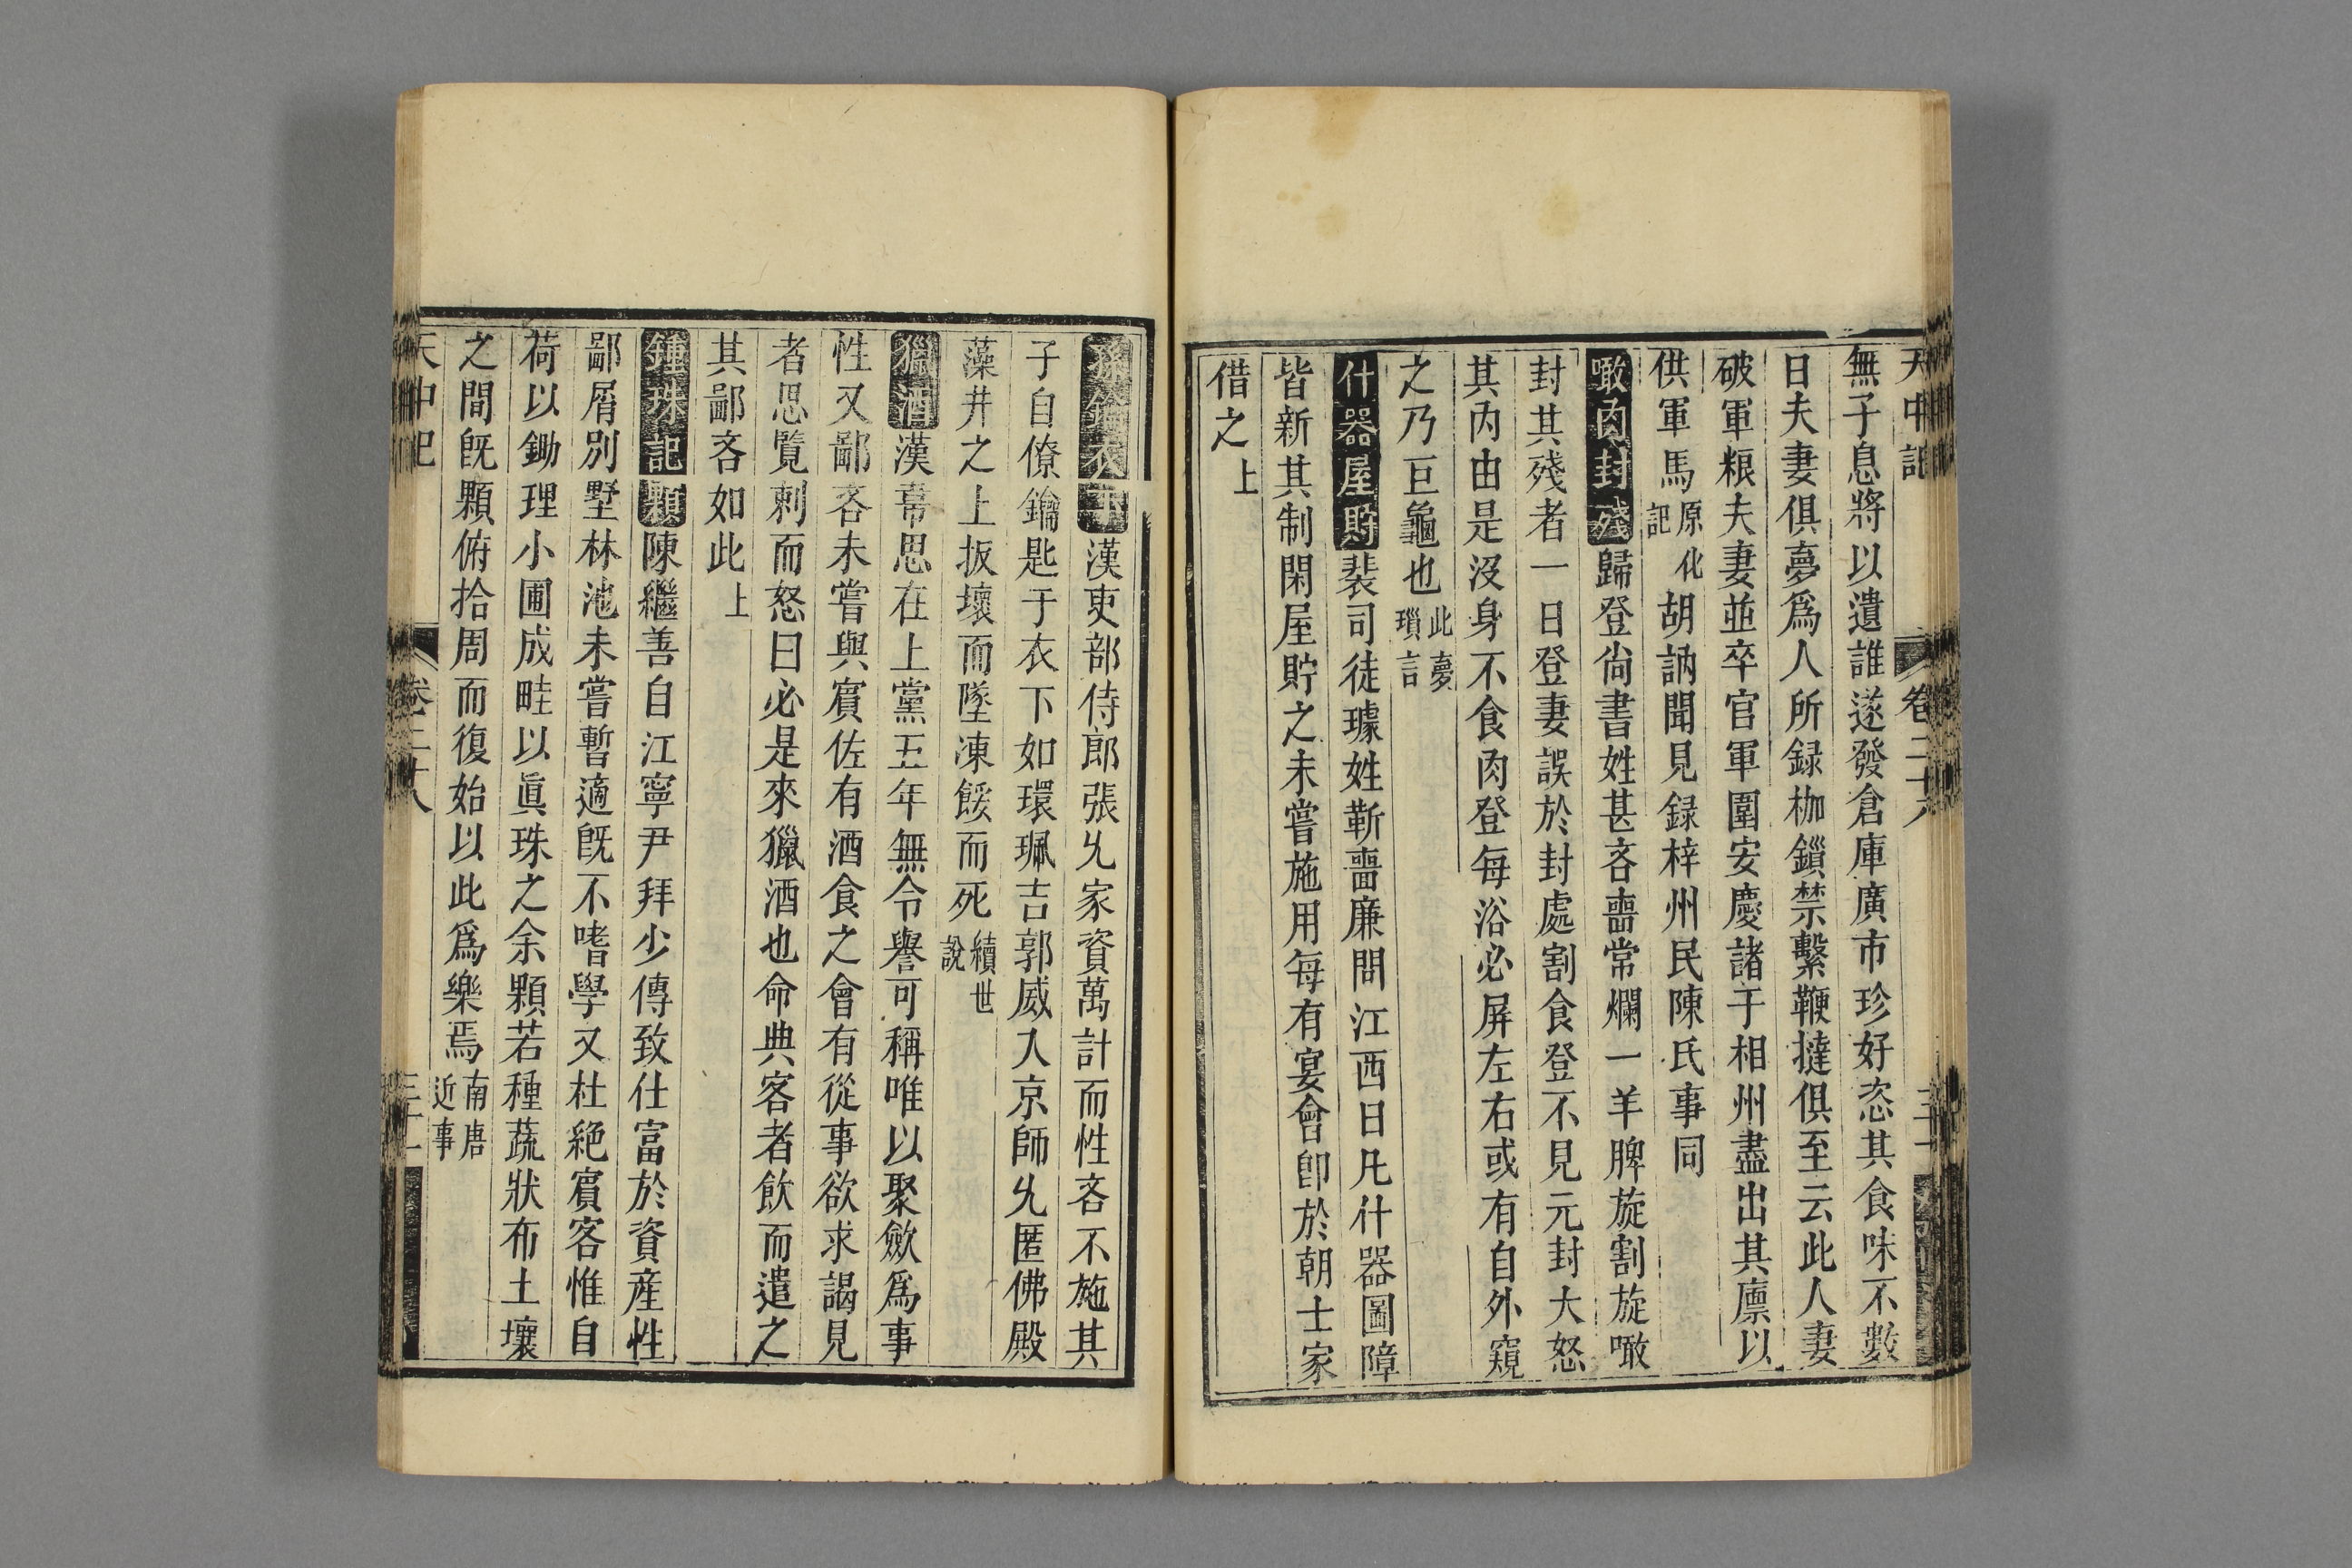 天中記 卷二十八 三十
無子息將以遺誰遂發倉庫廣市珍好恣其食味不數
日夫妻俱夢爲人所録枷鎖禁繫鞭撻俱至云此人妻
破軍粮夫妻並卒官軍圍安慶諸于相州盡出其廪以
供軍馬原化記胡訥聞見録梓州民陳氏事同
噉肉封殘歸登尙書姓甚吝嗇常爛一羊脾旋割旋噉
封其殘者一日登妻誤於封處割食登不見元封大怒
其內由是沒身不食肉登每浴必屏左右或有自外窺
之乃巨龜也此夢瑣言
什器屋貯裴司徒璩姓靳嗇廉問江西日凡什器圖障
皆新其制閑屋貯之未嘗施用每有宴會卽於朝士家
借之上
衣下漢吏部侍郎張允家資萬計而性吝不施其
子自僚鑰匙于衣下如環珮吉郭威入京師允匿佛殿
藻井之上扳壞而墜凍餒而死續世說
獵酒漢常思在上黨五年無令譽可稱唯以聚斂爲事
性又鄙吝未嘗與賓佐有酒食之會有從事欲求謁見
者思覽刺而怒曰必是來獵酒也命典客者飲而遣之
其鄙吝如此上
鍾珠記顆陳繼善自江寧尹拜少傅致仕富於資産性
鄙屑別墅林池未嘗暫適旣不嗜學又杜絶賓客惟自
荷以鋤理小圃成畦以眞珠之余顆若種蔬狀布土壤
之間旣顆俯拾周而復始以此爲樂焉南唐近事
天中記 卷二十八 三十一